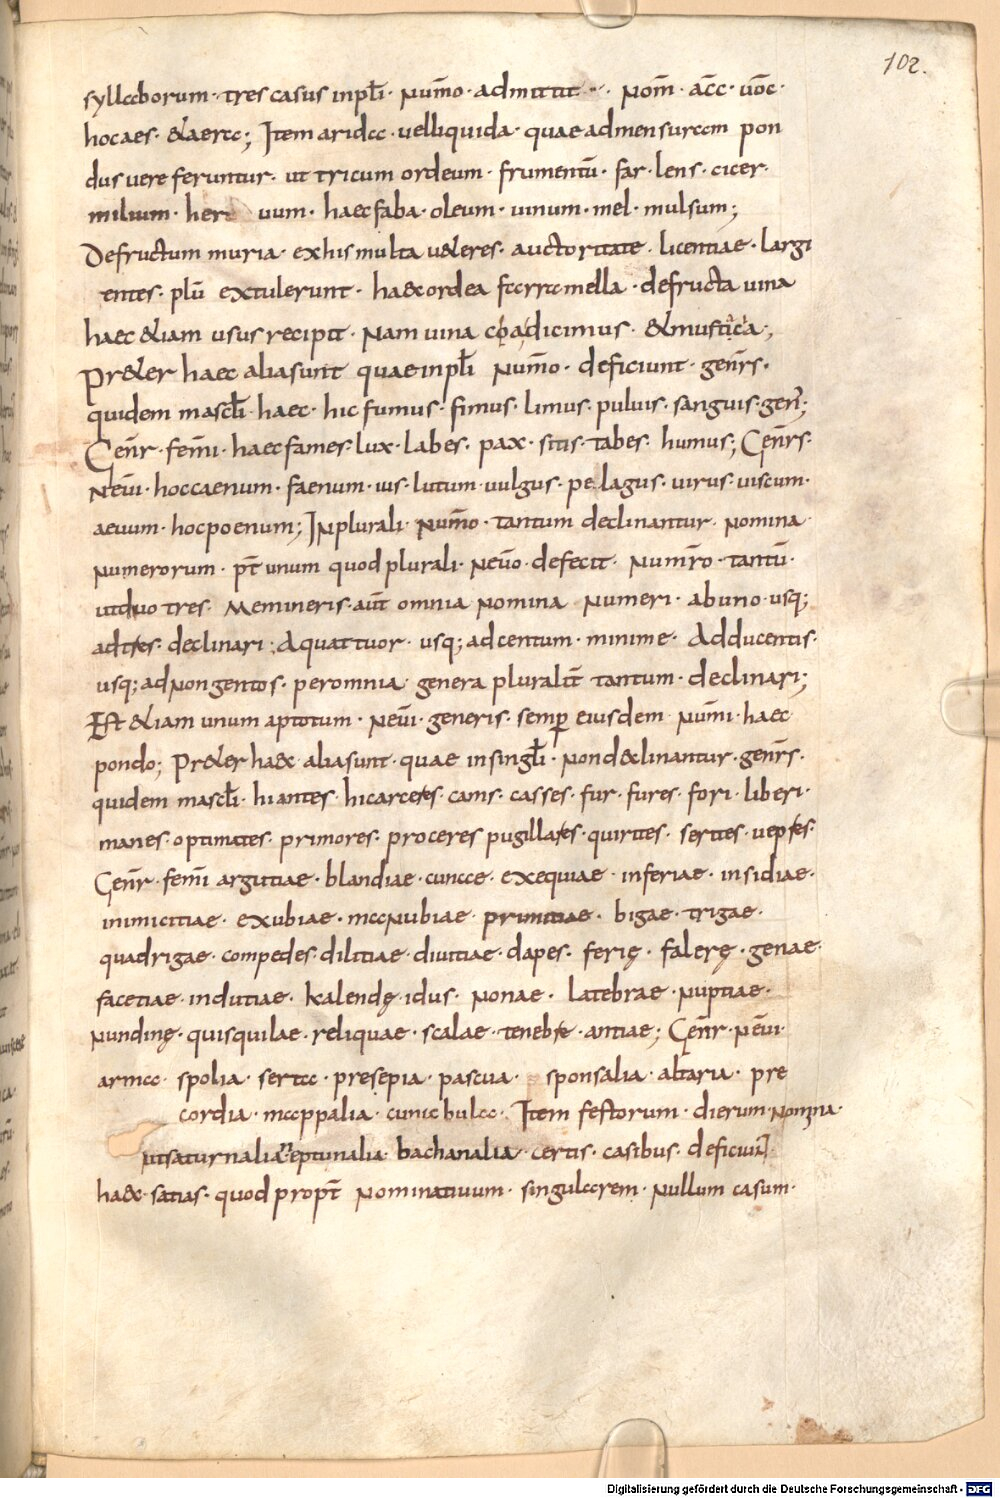 102.
syllaborum· tres casus inpl̄i· num̄o· admittit·· nom̄· acc̄· uōc·
hocaes· &aera; Item arida· uelliquida· quae admensuram pon
dus uere feruntur· ut tricum ordeum· frumentū· far· lens· cicer·
milium· her uum· haec faba· oleum· uinum· mel· mulsum;
Defructum muria· exhis multa u&eres· auctoritate· licentiae· largi
entes· plū extulerunt· haec ordea farra mella· defructa uina
haec &iam usus recipit· Nam uina coadicimus· &mustica;
Pr&er haec aliasunt quae inpl̄i num̄o· deficiunt· gen̄rs·
quidem mascl̄i· haec· hic fumus· fimus· limus· puluis· sanguis· gen̄;
Gen̄r· fem̄i· haec fames· lux· labes· pax· sitis· tabes· humus; Gen̄rs·
Neūi· hoccaenum· faenum· ius· lutum· uulgus· pe lagus· uirus· uiscum·
aeuum· hocpoenum; INplurali· num̄o· tantum declinantur· nomina
numerorum· pt̄ unum quod plurali· neūo· defecit· num̄ro· tantū·
utduo tres· Memineris· aūt omnia nomina numeri· abuno· usq;
adtres· declinari· Aquattuor· usq; adcentum· minime· Adducentis·
usq; adnongentos· peromnia· genera pluralit̄ tantum· declinari;
Est &iam unum aptotum· neūi· generis· semp̄ eiusdem· num̄i· haec
pondo; Pr&er haec aliasunt· quae insingl̄i· nondeclinantur· gen̄rs·
quidem mascl̄i· hiantes· hicarceres· cams· casses· fur· fures· fori· liberi·
manes· optimates· primores· proceres pugillares· quirites· sertes· uepres·
Gen̄r· fem̄i argutiae· blandiae· cunccae· exequiae· inferiae· insidiae·
inimicitiae· exubiae· manubiae· primitiae· bigae· trigae·
quadrigae· compedes· dilitiae· diuitiae· dapes· ferię· falerę· genae·
facetiae· indutiae· kalendę· idus· nonae· latebrae· nuptiae·
nundinę· quisquilae· reliquae· scalae· tenebre· antiae; Gen̄r· neūi
arma· spolia· serta· presepia· pascua· sponsalia· altaria· pre
cordia· mappalia· cunabula· Item festorum· dierum· nomina·
utsaturnalia neptunalia· bachanalia· certis· casibus· deficiunt
haec· satias· quod propt̄ nominatiuum· singularem· nullum casum·
Digitalisierung gefördert durch die Deutsche Forschungsgemeinschaft - DFG